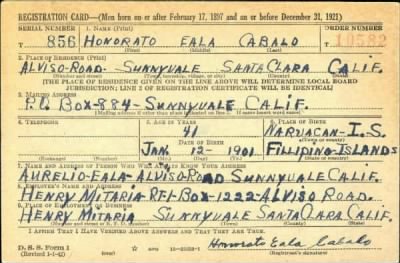 REGISTRATION CARD—(Men born on or after February 17, 1897 and on or before December 31, 1921)
SERIAL NUMBER 1. NAME (Print) ORDER NUMBER
T 856 HONORATO EALA CABALO 10582
(First) (Middle) (Last)
2. PLACE OF RESIDENCE (Print)
ALVISO-ROAD- SUNNYVALE SANTACLARA CALIF.
(Number and street) (Town, township, village, or city) (County) (State)
[THE PLACE OF RESIDENCE GIVEN ON THE LINE ABOVE WILL DETERMINE LOCAL BOARD
JURISDICTION; LINE 2 OF REGISTRATION CERTIFICATE WILL BE IDENTICAL]
3. MAILING ADDRESS
P.O. BOX-884-SUNNYVALE CALIF.
[Mailing address if other than place indicated on line 2. If same insert word same]
4. TELEPHONE 5. AGE IN YEARS 6. PLACE OF BIRTH
41 NARVACAN-I.S.
DATE OF BIRTH (Town or county)
JAN. 12- 1901. FILLIPINO-ISLANDS
(Exchange) (Number) (Mo.) (Day) (Yr.) (State or country)
7. NAME AND ADDRESS OF PERSON WHO WILL ALWAYS KNOW YOUR ADDRESS
AURELIO-EALA-ALVISO-ROAD SUNNYVALE CALIF.
8. EMPLOYER'S NAME AND ADDRESS
HENRY MITARIA-RFI-BOX-1222-ALVISO ROAD.
9. PLACE OF EMPLOYMENT OR BUSINESS
HENRY MITARIA SUNNYVALE SANTACLARA CALIF.
(Number and street or R. F. D. number) (Town) (County) (State)
I AFFIRM THAT I HAVE VERIFIED ABOVE ANSWERS AND THAT THEY ARE TRUE.
D. S. S. Form 1 Honorato Eala Cabalo
(Revised 1-1-42) (over) (Registrant's signature)